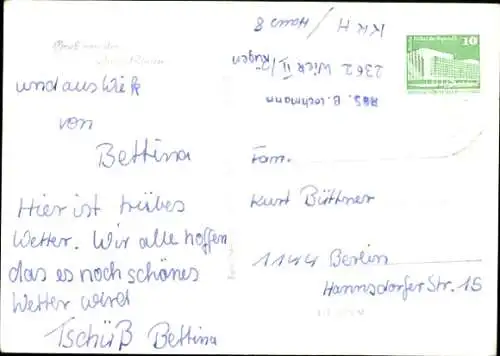 und aus Wiek
von
Bettina
Hier ist trübes
Wetter. Wir alle hoffen
das es noch schönes
Wetter wird
Tschüß Bettina
Abs. B. Lochmann
2362 Wiek II/
Rügen
KKH / Haus 8
10
Fam.
Kurt Büttner
1144 Berlin
Hannsdorfer Str. 15